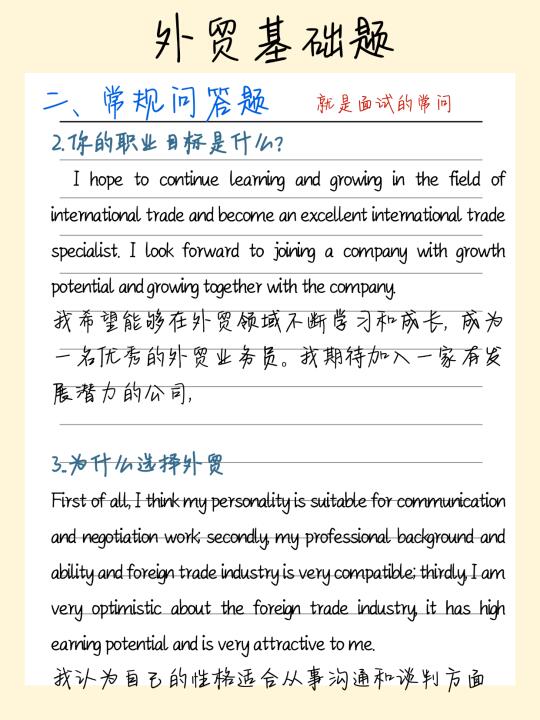 外贸基础题
二、常规问答题 就是面试的常问
2.你的职业目标是什么?
I hope to continue learning and growing in the field of
international trade and become an excellent international trade
specialist. I look forward to joining a company with growth
potential and growing together with the company.
我希望能够在外贸领域不断学习和成长, 成为
一名优秀的外贸业务员。我期待加入一家有发
展潜力的公司,
3.为什么选择外贸
First of all, I think my personality is suitable for communication
and negotiation work; secondly, my professional background and
ability and foreign trade industry is very compatible; thirdly, I am
very optimistic about the foreign trade industry, it has high
earning potential and is very attractive to me.
我认为自己的性格适合从事沟通和谈判方面